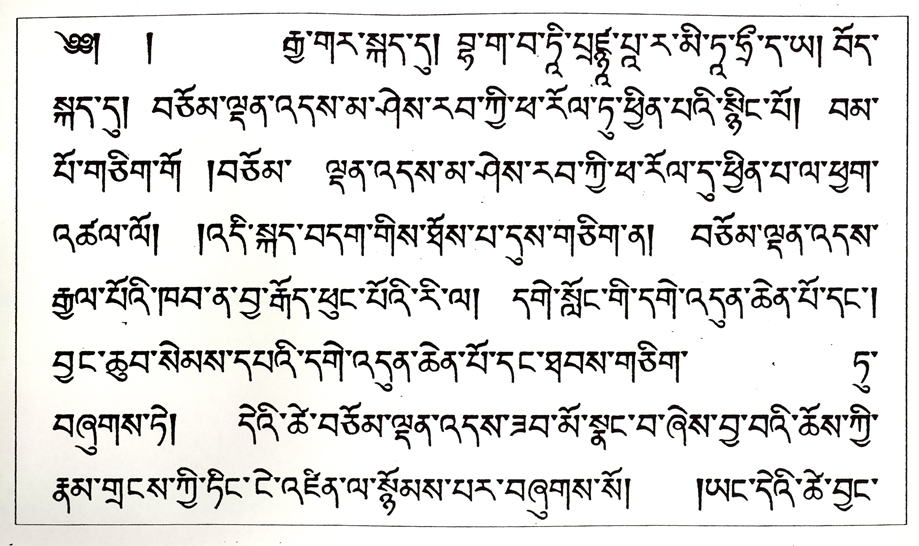 ༄༅། །རྒྱ་གར་སྐད་དུ། བྷ་ག་བ་ཏཱི་པྲཛྙཱ་པཱ་ར་མི་ཏཱ་ཧྲྀ་ད་ཡ། བོད་
སྐད་དུ། བཅོམ་ལྡན་འདས་མ་ཤེས་རབ་ཀྱི་ཕ་རོལ་ཏུ་ཕྱིན་པའི་སྙིང་པོ། བམ་
པོ་གཅིག་གོ །བཅོམ་ ལྡན་འདས་མ་ཤེས་རབ་ཀྱི་ཕ་རོལ་དུ་ཕྱིན་པ་ལ་ཕྱག་
འཚལ་ལོ། །འདི་སྐད་བདག་གིས་ཐོས་པ་དུས་གཅིག་ན། བཅོམ་ལྡན་འདས་
རྒྱལ་པོའི་ཁབ་ན་བྱ་རྒོད་ཕུང་པོའི་རི་ལ། དགེ་སློང་གི་དགེ་འདུན་ཆེན་པོ་དང་།
བྱང་ཆུབ་སེམས་དཔའི་དགེ་འདུན་ཆེན་པོ་དང་ཐབས་གཅིག་ ཏུ་
བཞུགས་ཏེ། དེའི་ཚེ་བཅོམ་ལྡན་འདས་ཟབ་མོ་སྣང་བ་ཞེས་བྱ་བའི་ཆོས་ཀྱི་
རྣམ་གྲངས་ཀྱི་ཏིང་ངེ་འཛིན་ལ་སྙོམས་པར་བཞུགས་སོ། །ཡང་དེའི་ཚེ་བྱང་